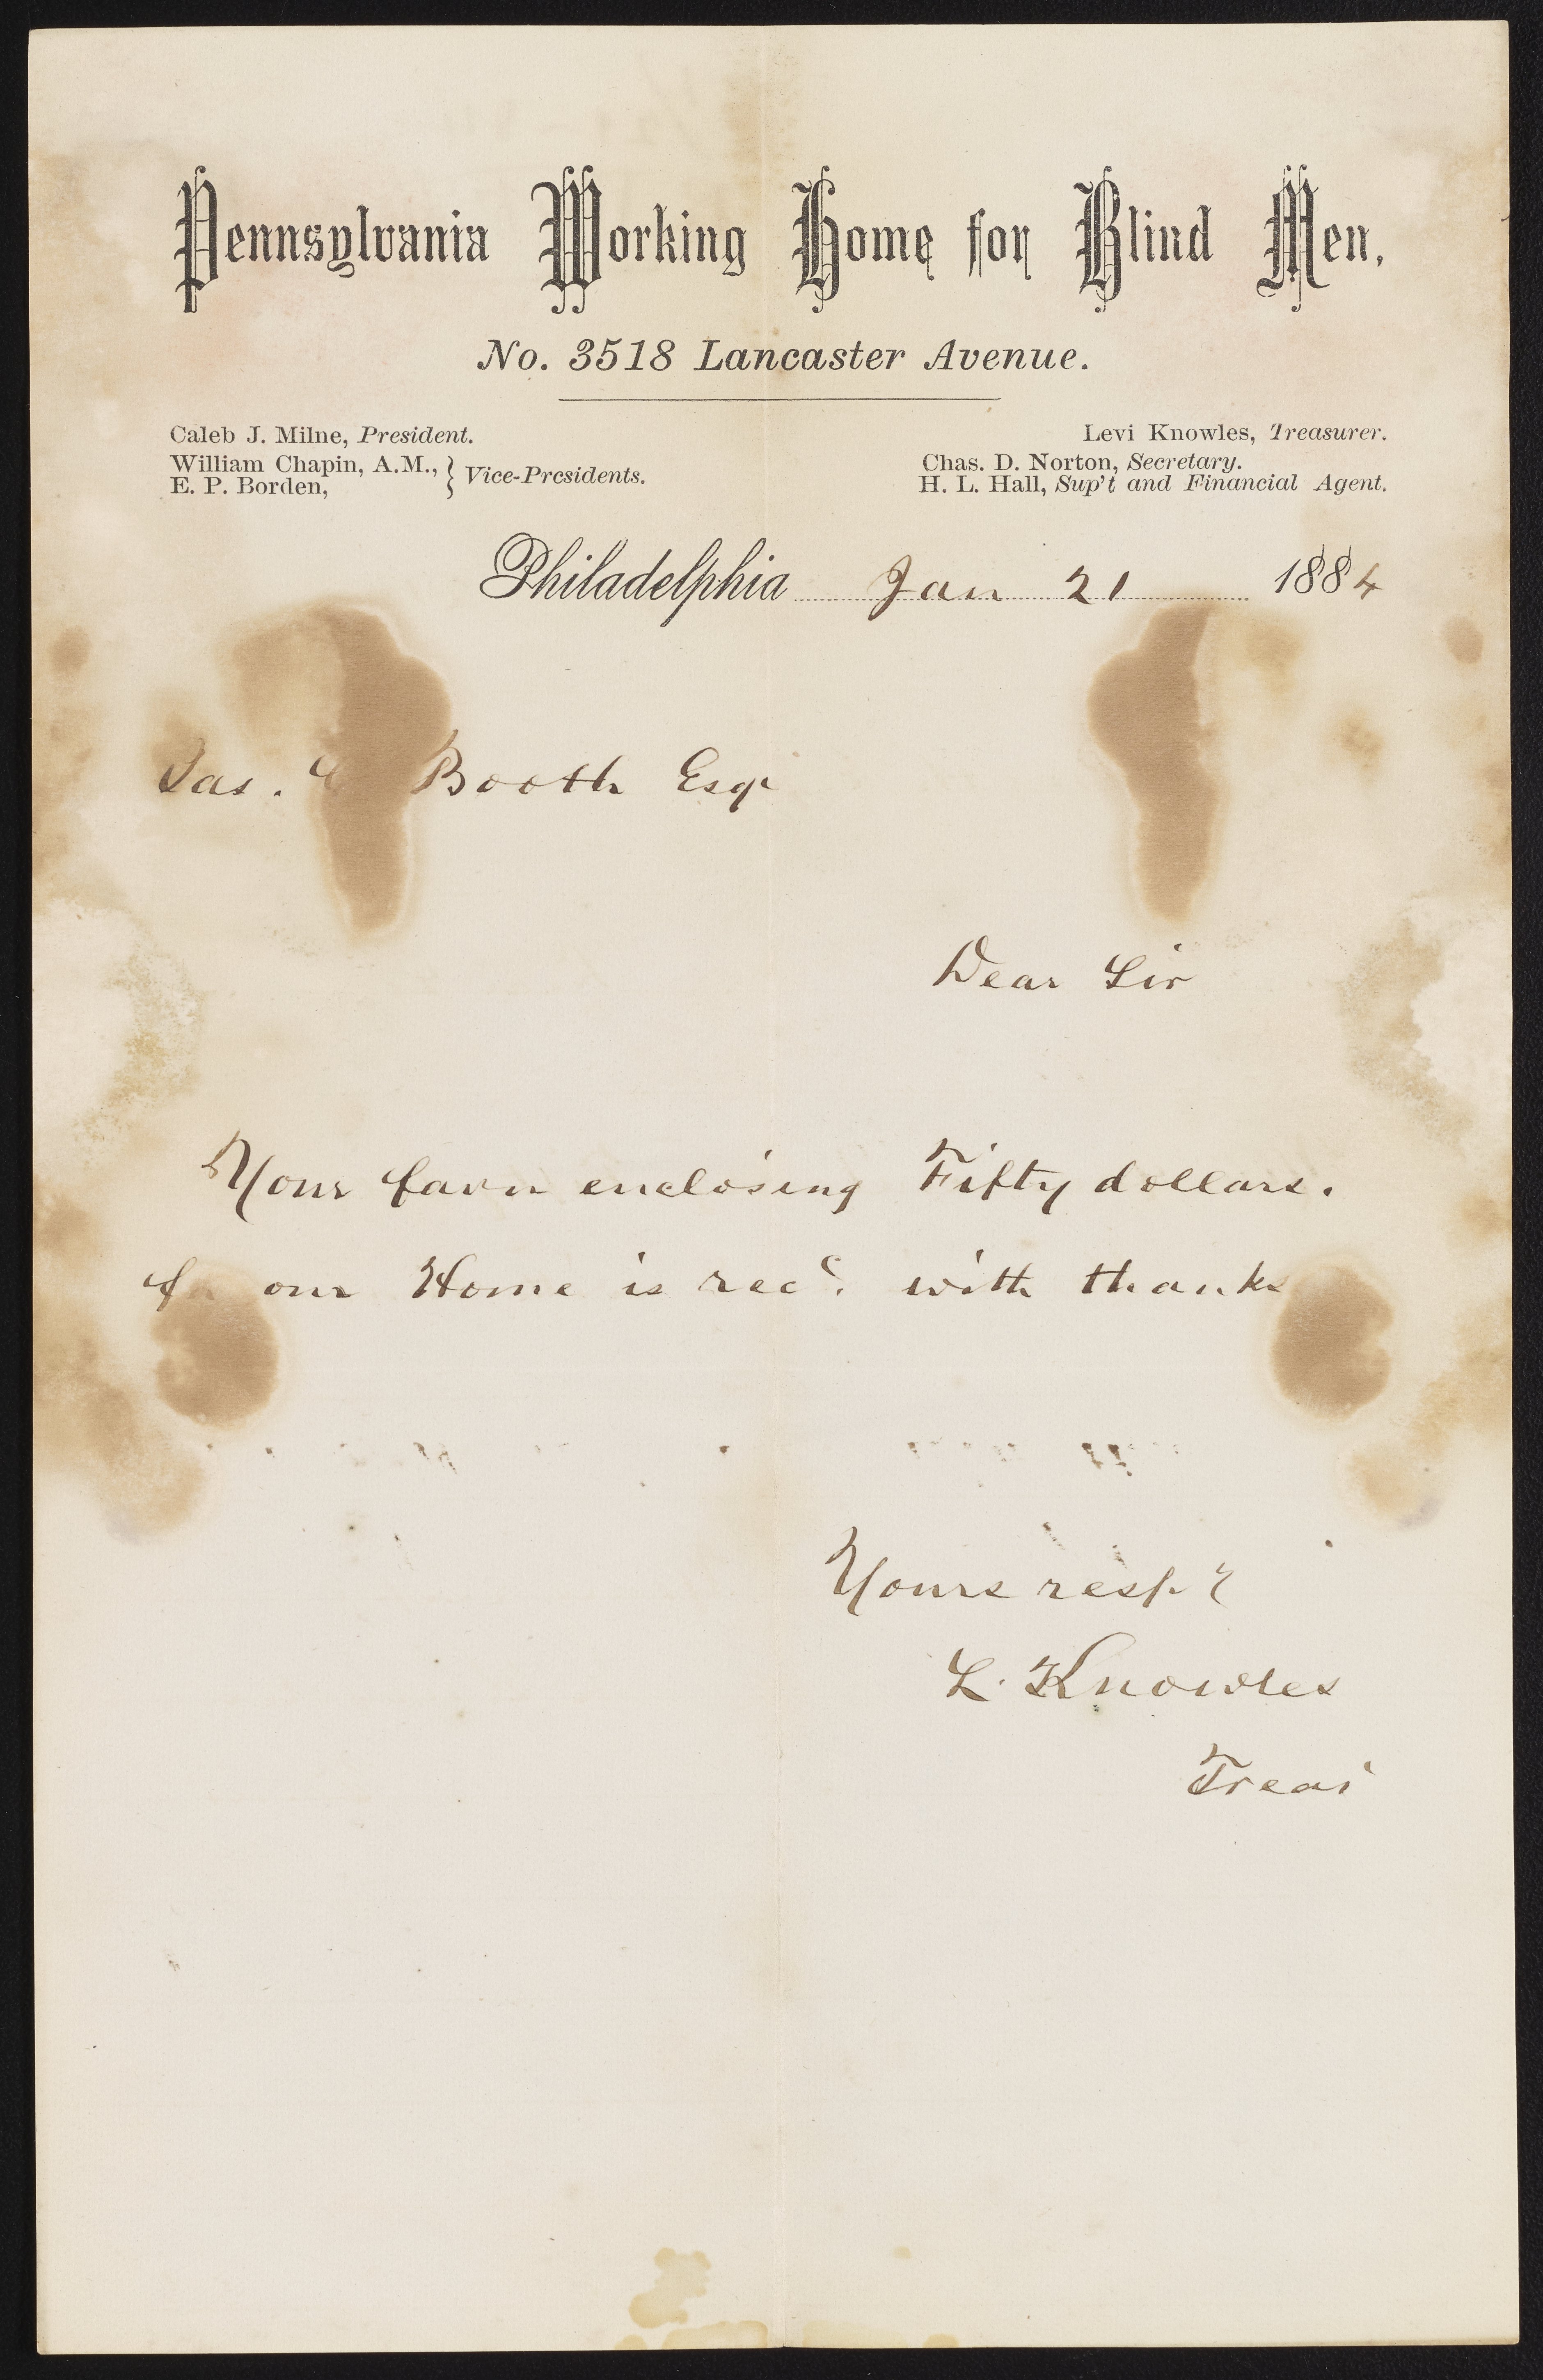 Pennsylvania Working Home for Blind Men,
No. 3518 Lancaster Avenue.
Caleb J. Milne, President.
William Chapin, A.M.,
E. P. Borden,
} Vice-Presidents.
Levi Knowles, Treasurer.
Chas. D. Norton, Secretary.
H. L. Hall, Sup't and Financial Agent.
Philadelphia Jan 21 1884
Jas. Booth Esqr
Dear Sir
Your favor enclosing Fifty dollars.
for our Home is recd. with thanks
Yours respy
L. Knowles
Treas